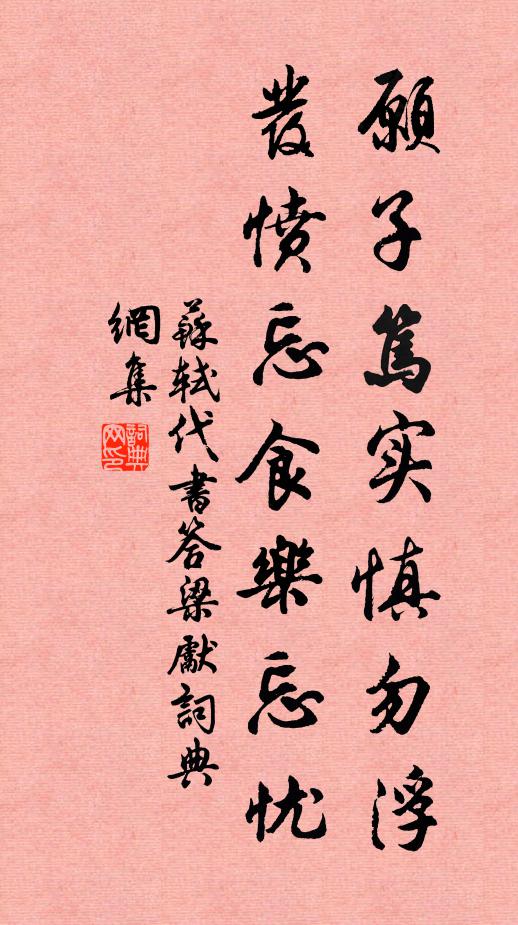 願子篤实慎勿浮
發憤忘食樂忘忧
蘇軾代書答梁獻詞典
網集
詞典
网印